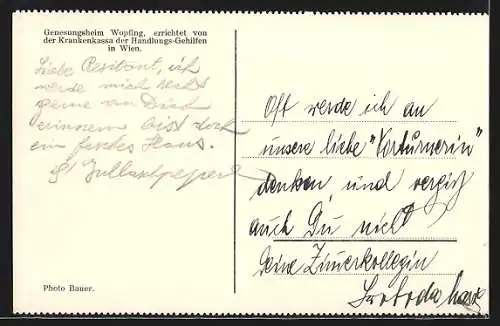 Genesungsheim Wopfing, errichtet von
der Krankenkassa der Handlungs-Gehilfen
in Wien.
Liebe Resitant, ich
werde mich stets
gerne an Dich
erinnern bist doch
ein fesches Haus.
Oft werde ich an
unsere liebe "Vorturnerin"
denken, und vergiß
auch Du nicht
Deine Zimmerkollegin
Svoboda
Photo Bauer.